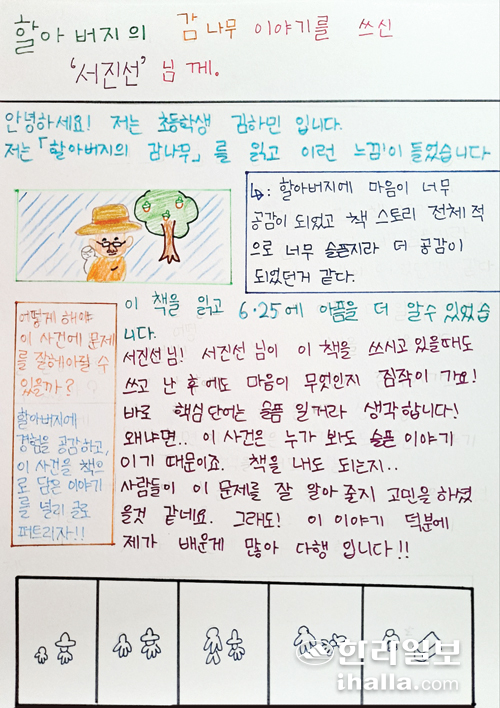 할아버지의 감나무 이야기를 쓰신
'서진선' 님께.
안녕하세요! 저는 초등학생 김하민 입니다.
저는 「할아버지의 감나무」를 읽고 이런 느낌!이 들었습니다
↳: 할아버지에 마음이 너무
공감이 되었고 책 스토리 전체 적
으로 너무 슬픈지라 더 공감이
되었던거 같다.
어떻게 해야
이 사건에 문제
를 잘해아릴 수
있을까?
할아버지에
경험을 공감하고,
이 사건을 책으
로 담은 이야기
를 널리 글로
퍼트리자!!
이 책을 읽고 6·25에 아픔을 더 알수 있었습
니다.
서진선님! 서진선 님이 이 책을 쓰시고 있을때도
쓰고 난 후에도 마음이 무엇인지 짐작이 가요!
바로 핵심 단어는 슬픔 일거라 생각합니다!
왜냐면.. 이 사건은 누가 봐도 슬픈 이야기
이기 때문이죠. 책을 내도 되는지..
사람들이 이 문제를 잘 알아 줄지 고민을 하셨
을것 같네요. 그래도! 이 이야기 덕분에
제가 배운게 많아 다행 입니다!!
한라일보
ihalla.com